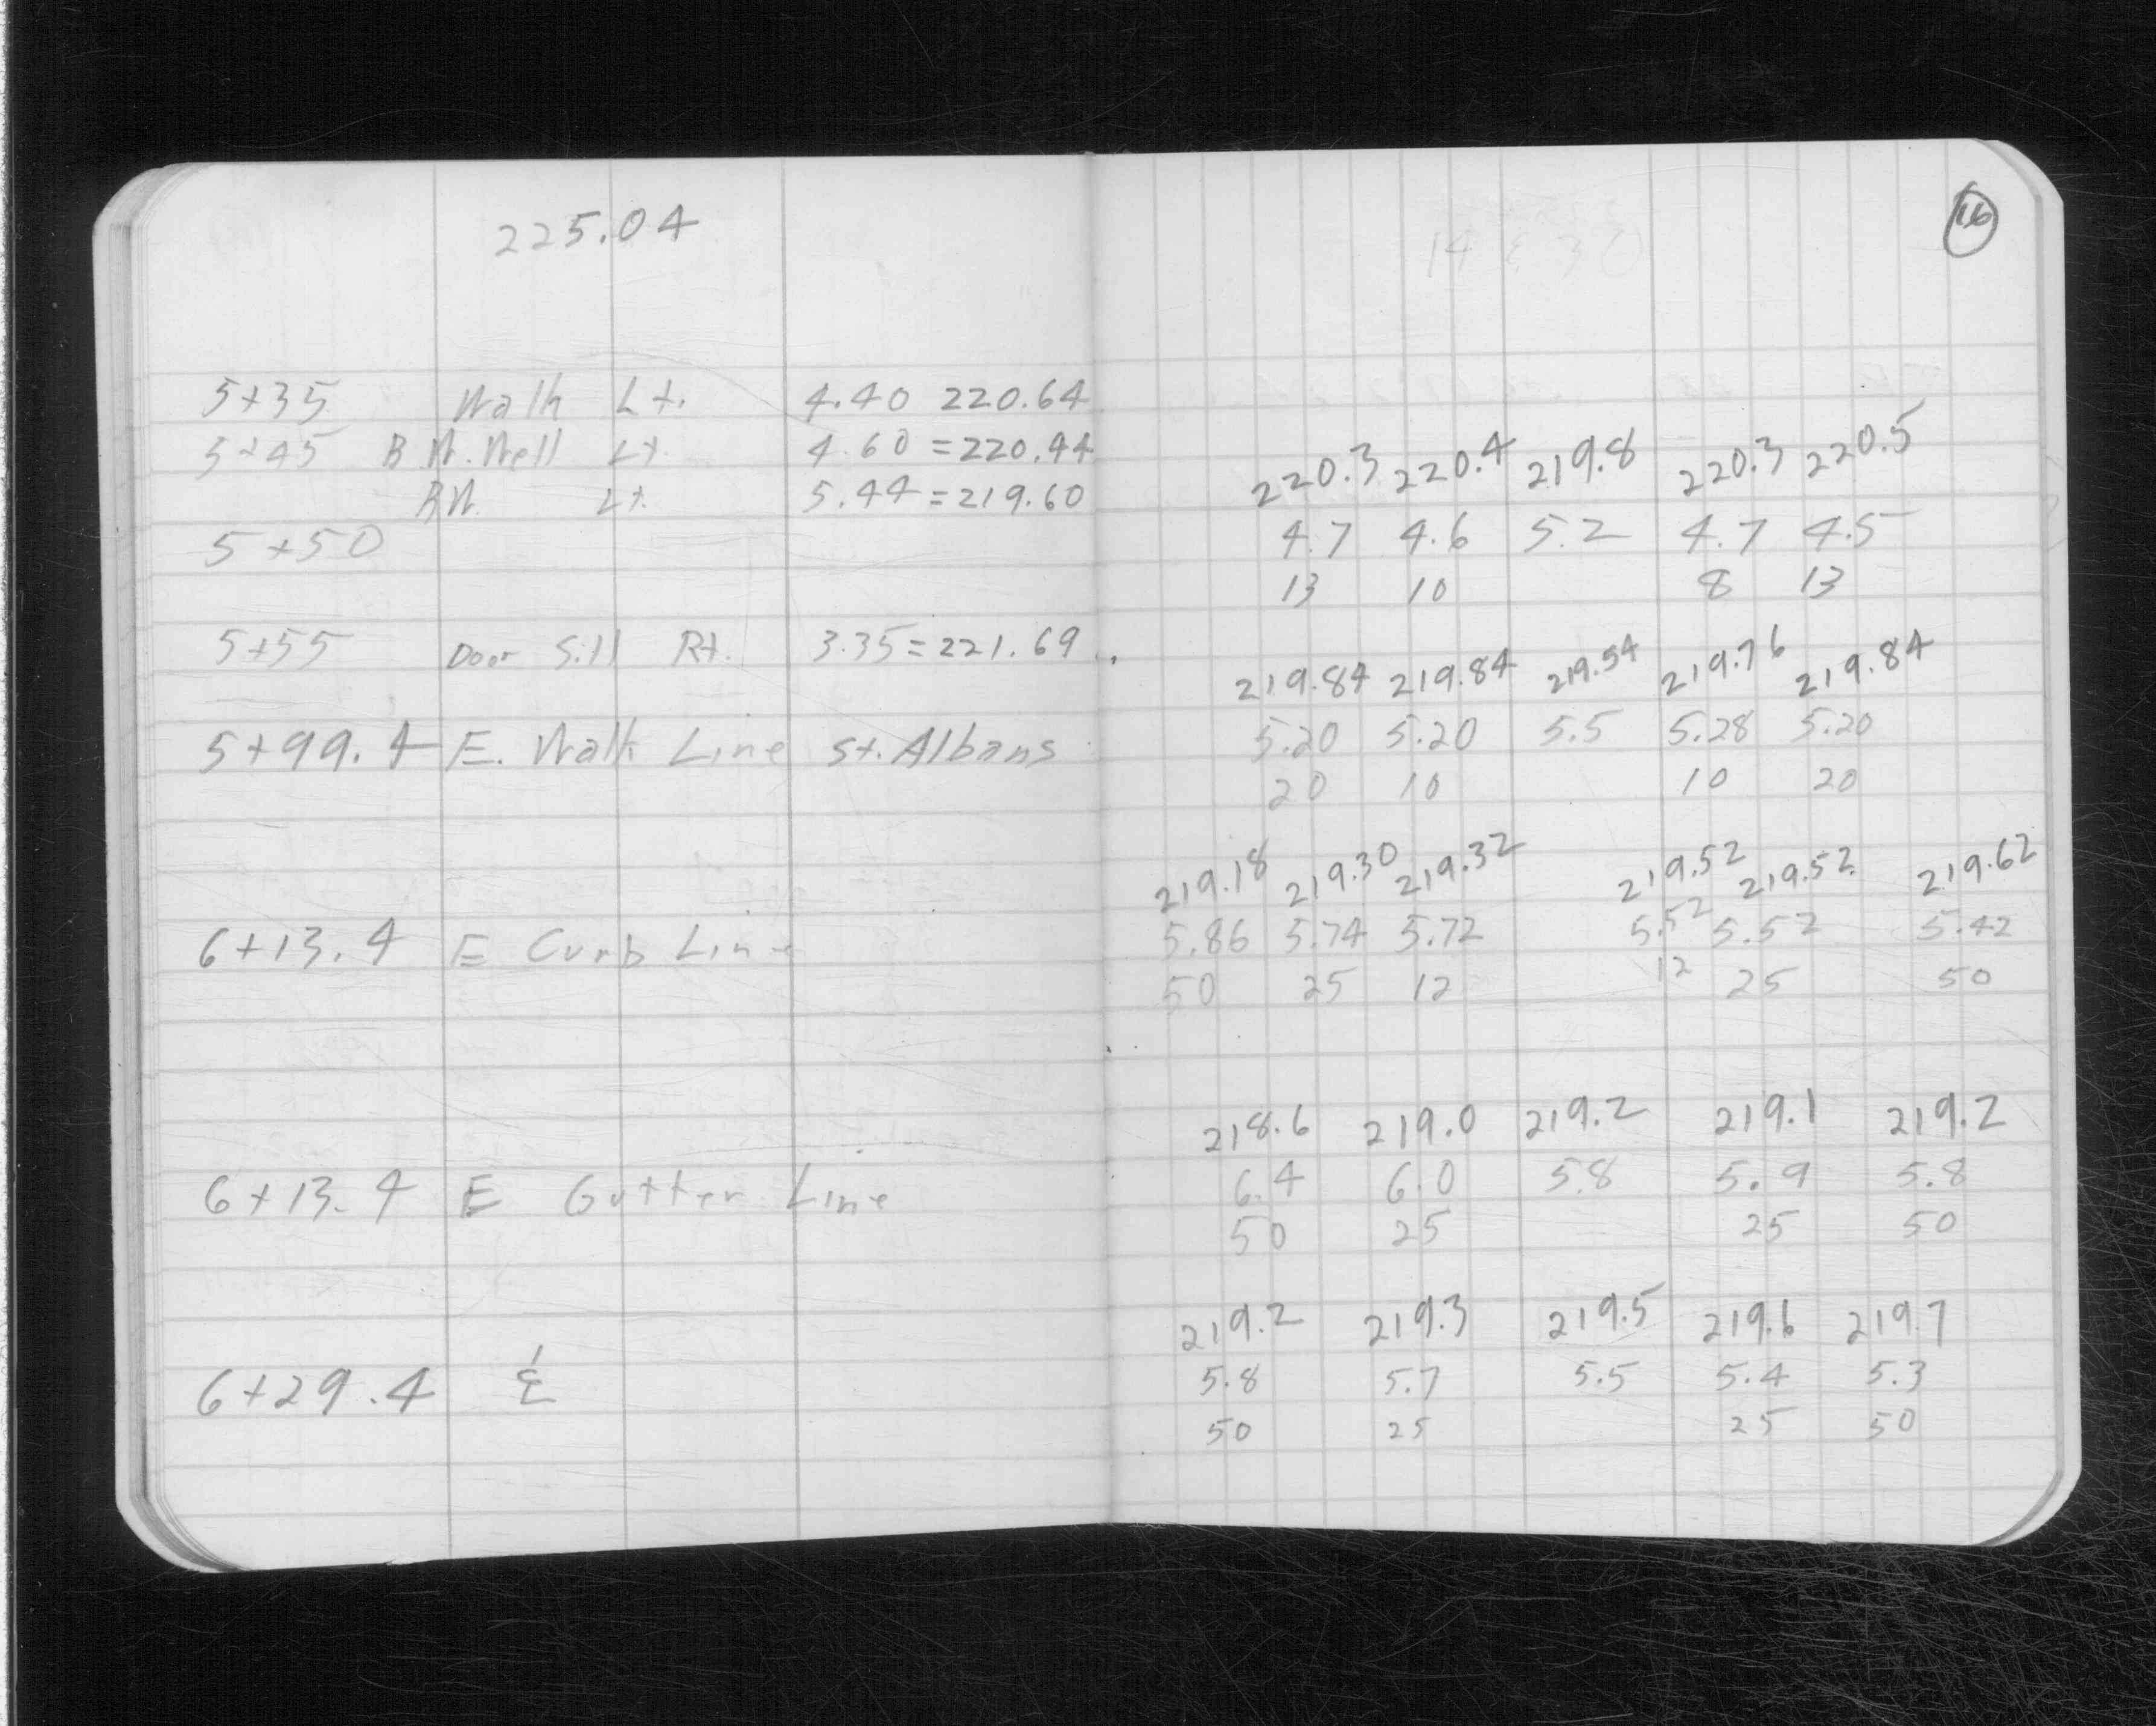 225.04
16
5+35 Walk Lt. 4.40 220.64
5+45 B W. Well Lt. 4.60 = 220.44
BW. Lt. 5.44 = 219.60
220.3 220.4 219.8 220.3 220.5
5+50 4.7 4.6 5.2 4.7 4.5
13 10 8 13
5+55 Door Sill Rt. 3.35 = 221.69
219.84 219.84 219.54 219.76 219.84
5+99.4 E. Walk Line St. Albans 5.20 5.20 5.5 5.28 5.20
20 10 10 20
219.18 219.30 219.32 219.52 219.52 219.62
6+13.4 E Curb Line 5.86 5.74 5.72 5.52 5.52 5.42
50 25 12 12 25 50
218.6 219.0 219.2 219.1 219.2
6+13.4 E Gutter Line 6.4 6.0 5.8 5.9 5.8
50 25 25 50
219.2 219.3 219.5 219.6 219.7
6+29.4 ℄ 5.8 5.7 5.5 5.4 5.3
50 25 25 50